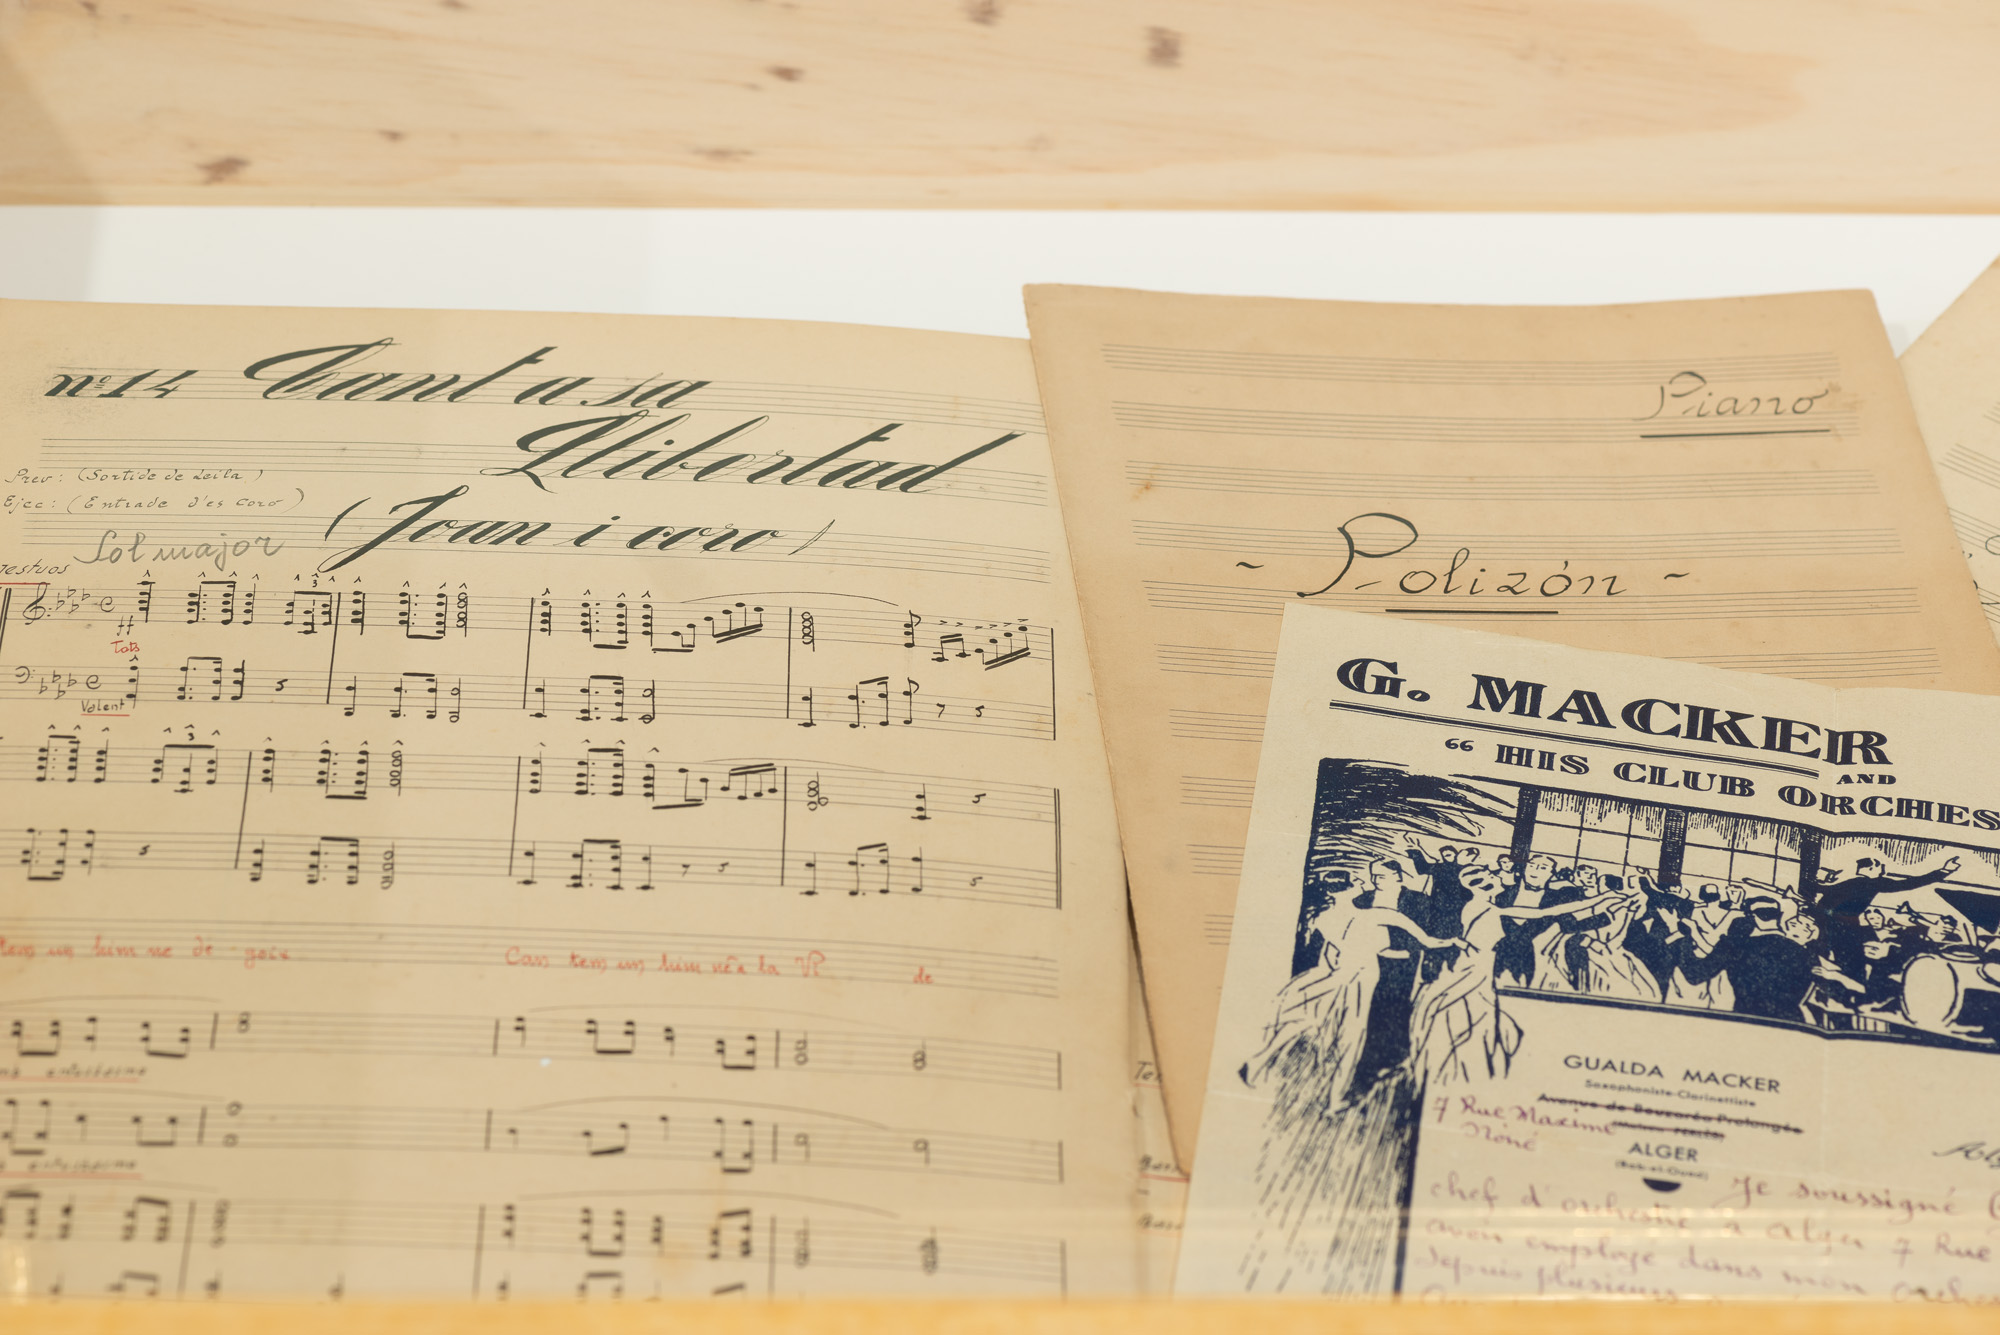 nº 14 Cant a sa
Llibertad
(Joan i coro)
Prev: (Sortide de Leila)
Ejec: (Entrade d'es coro)
Sol major
ff
Tots
Valent
3
3
tem un him ne de goix
Can tem un him ne a la Vi de
Piano
- Polizón -
G. MACKER
AND
“ HIS CLUB ORCHES
GUALDA MACKER
Saxophoniste-Clarinettiste
Avenue de Bouzaréa Prolongée
7 Rue Maxime
Noné
ALGER
(Bab-el-Oued)
Je soussigné
chef d'orchestre à Alger 7 Rue
avoir employé dans mon orches
depuis plusieurs